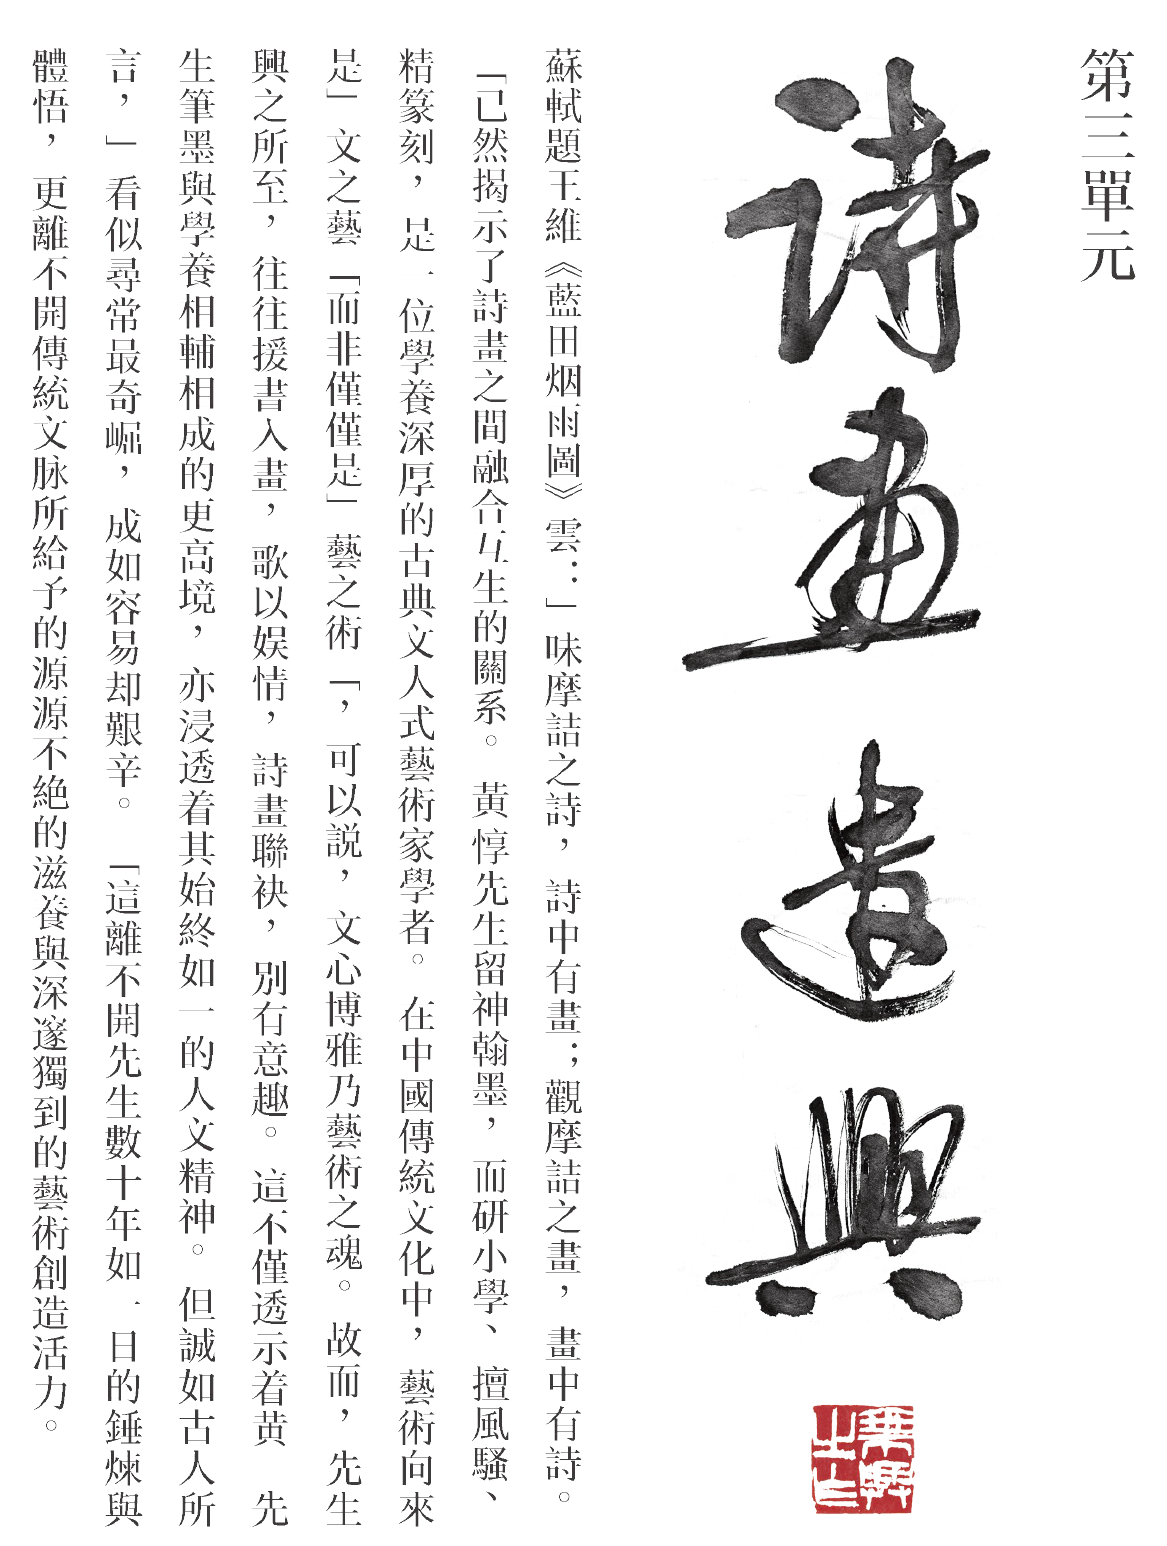 第三單元
詩畫遣興
蘇軾題王維《藍田烟雨圖》雲：」味摩詰之詩，詩中有畫；觀摩詰之畫，畫中有詩。
「已然揭示了詩畫之間融合互生的關系。黃惇先生留神翰墨，而研小學、擅風騷、
精篆刻，是一位學養深厚的古典文人式藝術家學者。在中國傳統文化中，藝術向來
是」文之藝「而非僅僅是」藝之術「，可以説，文心博雅乃藝術之魂。故而，先生
興之所至，往往援書入畫，歌以娛情，詩畫聯袂，別有意趣。這不僅透示着黃 先
生筆墨與學養相輔相成的更高境，亦浸透着其始終如一的人文精神。但誠如古人所
言，」看似尋常最奇崛，成如容易却艱辛。「這離不開先生數十年如一日的錘煉與
體悟，更離不開傳統文脉所給予的源源不絶的滋養與深邃獨到的藝術創造活力。